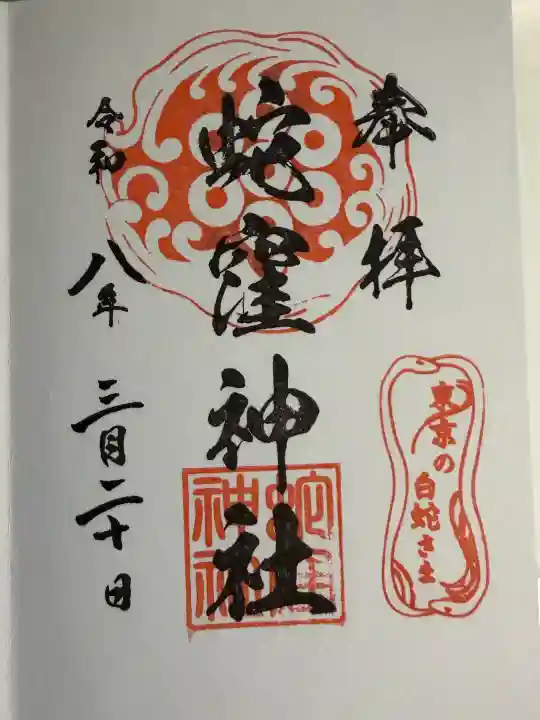 奉拝
蛇窪神社
令和八年三月二十日
東京の
白蛇さま
蛇窪
神社